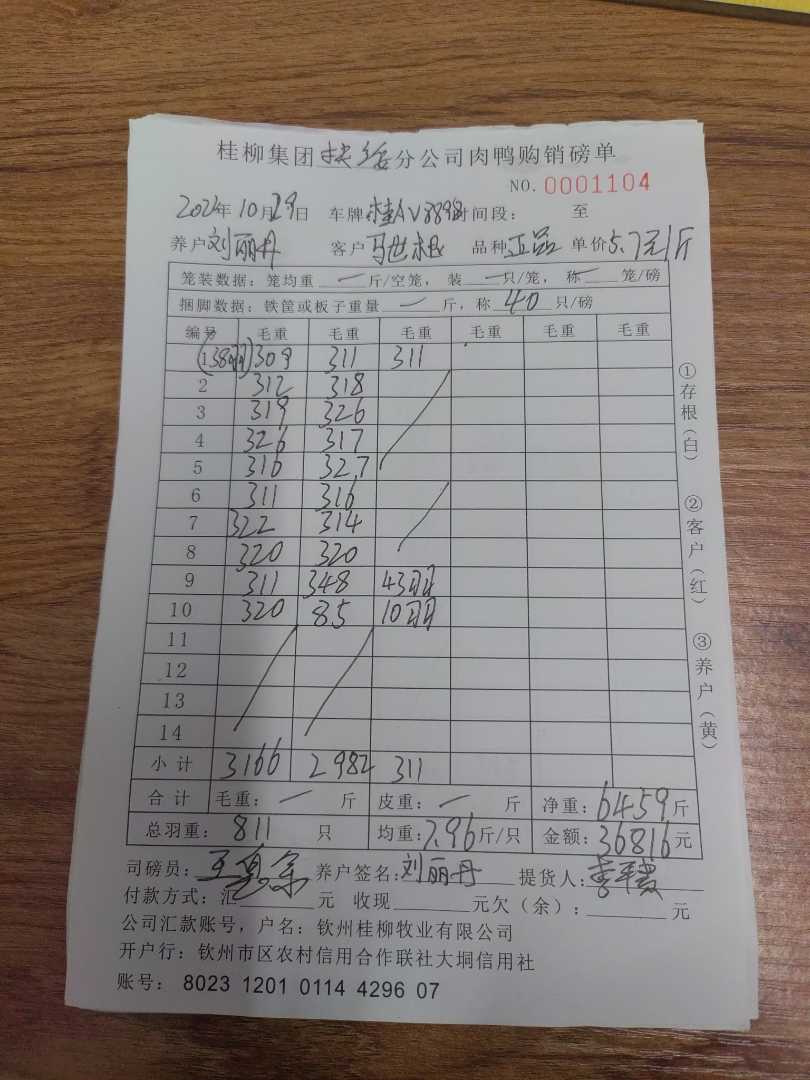 桂柳集团扶绥分公司肉鸭购销磅单
NO. 0001104
2024年10月29日 车牌桂AV3898时间段: 至
养户刘丽丹 客户马世根 品种正品 单价5.7元/斤
笼装数据: 笼均重 一 斤/空笼, 装 一 只/笼, 称 一 笼/磅
捆脚数据: 铁筐或板子重量 一 斤, 称 40 只/磅
编号 毛重 毛重 毛重 毛重 毛重 毛重
1(38羽) 309 311 311
2 312 318
3 319 326
4 326 317
5 316 327
6 311 316
7 322 314
8 320 320
9 311 348 43羽
10 320 85 10羽
11
12
13
14
小计 3166 2982 311
合计 毛重: 一 斤 皮重: 一 斤 净重: 6459斤
总羽重: 811 只 均重: 7.96斤/只 金额: 36816元
司磅员: 养户签名: 刘丽丹 提货人:
付款方式: 汇 元 收现 元欠(余): 元
公司汇款账号, 户名: 钦州桂柳牧业有限公司
开户行: 钦州市区农村信用合作联社大垌信用社
账号: 8023 1201 0114 4296 07
①存根(白) ②客户(红) ③养户(黄)